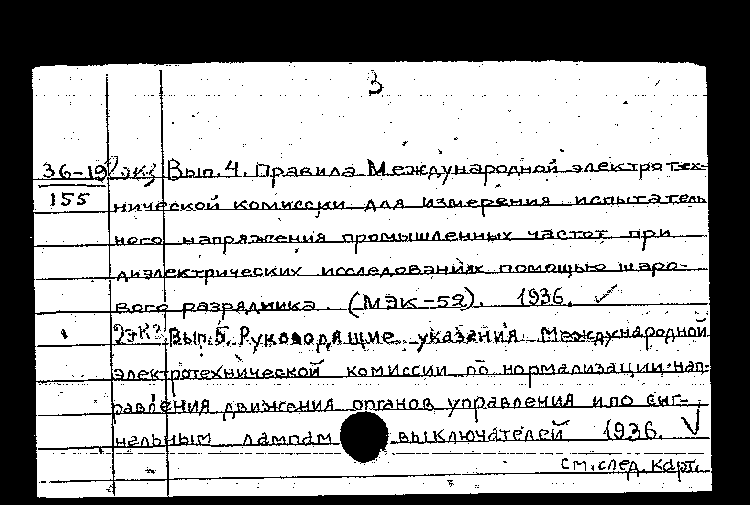 3
36-19 2экз Вып. 4. Правила Международной электротех-
155 нической комиссии для измерения испытатель
ного напряжения промышленных частот при
диэлектрических исследованиях помощью шаро-
вого разрядника. (МЭК-52). 1936. ✓
2экз. Вып. 5. Руководящие указания Международной
электротехнической комиссии по нормализации нап-
равления движения органов управления и по сиг-
нальным лампам выключателей 1936. ✓
см. след. карт.